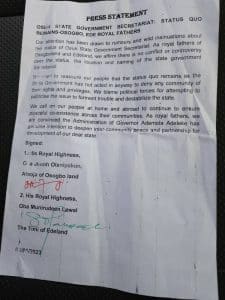 PRESS STATEMENT
STATE GOVERNMENT SECRETARIAT: STATUS QUO
REMAINS-OSOGBO, EDE ROYAL FATHERS
Our attention has been drawn to rumours and wild claims about
the issue of Osun State Government Secretariat. As royal fathers of
Osogboland and Edeland, we affirm there is no conflict or controversy
over the status, the location and naming of the state government
We want to reassure our people that the status quo remains as the
State Government has not acted in anyway to deny any community of
their rights and privileges. We blame political forces for attempting to
politicise the issue to foment trouble and destabilise the state.
We call on our people at home and abroad to continue to ensure
peaceful co-existence across their communities. As royal fathers, we
are convinced the Administration of Governor Ademola Adeleke has
genuine intention to deepen your community peace and partnership for
development of our dear state.
Signed:
1. His Royal Highness,
Oba Jimoh Olanipekun,
Ataoja of Osogbo land
2. His Royal Highness,
Oba Munirudeen Lawal
The Timi of Edeland